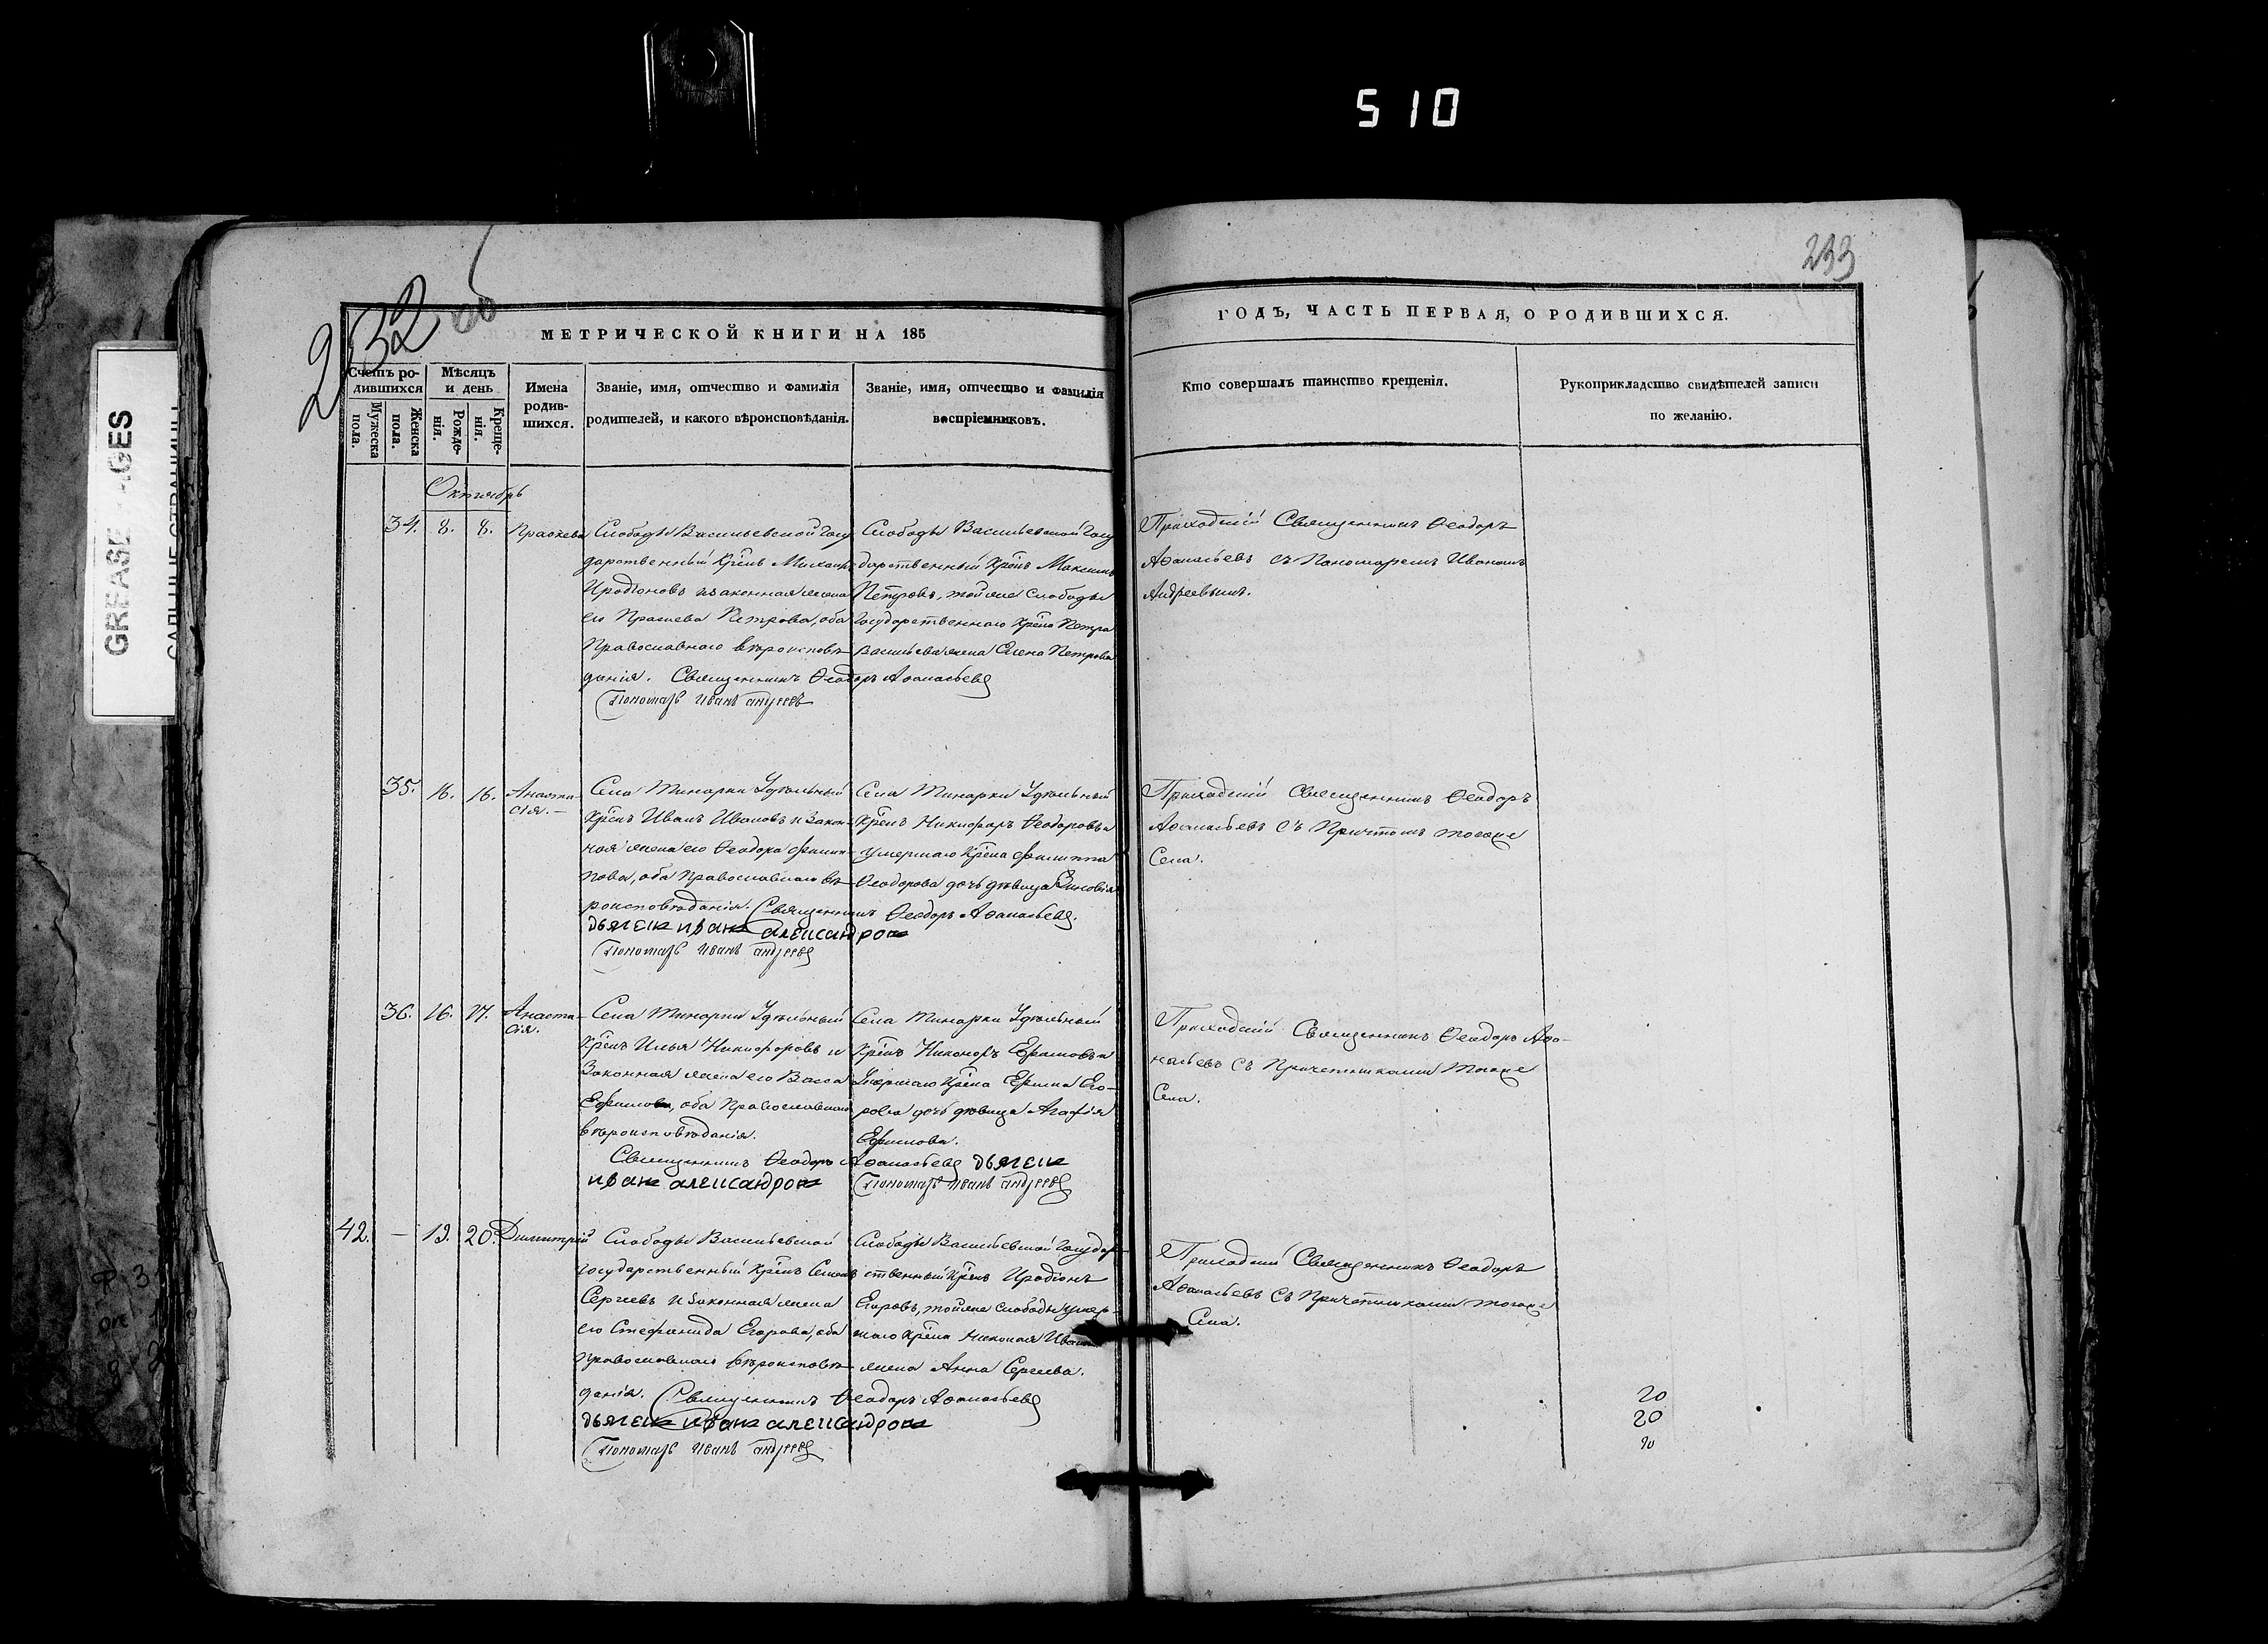 510
232 об
233
МЕТРИЧЕСКОЙ КНИГИ НА 185
ГОДЪ, ЧАСТЬ ПЕРВАЯ, О РОДИВШИХСЯ.
Счетъ ро-
дившихся
Мужеска
пола.
Женска
пола.
Мѣсяцъ
и день
Рожде-
нія.
Креще-
нія.
Имена
родив-
шихся.
Званіе, имя, отчество и фамилія
родителей, и какого вѣроисповѣданія.
Званіе, имя, отчество и фамилія
воспріемниковъ.
Кто совершалъ таинство крещенія.
Рукоприкладство свидѣтелей записи
по желанію.
GREASE
GES
Октябрь
34. 8. 8. Праскева
Слободы Васильевской Госу
дарственный Крⷭ҇нъ Михаилъ
Иродіоновъ и законная жена
его Праскева Петрова, оба
Православнаго вѣроисповѣ
данія. Священникъ Ѳеодоръ Аѳанасьевъ
Пономарь Иванъ Андреевъ
Слободы Васильевской Госу
дарственный Крⷭ҇нъ Максимъ
Петровъ, тойже Слободы
Государственнаго Крⷭ҇на Петра
Васильева жена Елена Петрова
Приходскій Священникъ Ѳеодоръ
Аѳанасьевъ съ Пономаремъ Иваномъ
Андреевымъ.
35. 16. 16. Анаста-
сія.
Села Тинарки Удѣльный
Крⷭ҇нъ Иванъ Ивановъ и закон-
ная жена его Ѳеодора Филип-
пова, оба Православнаго вѣ-
роисповѣданія. Священникъ Ѳеодоръ Аѳанасьевъ.
дьячекъ иванъ александровъ
Пономарь Иванъ Андреевъ
Села Тинарки Удѣльный
Крⷭ҇нъ Никифоръ Ѳеодоровъ и
умершаго Крⷭ҇на Филиппа
Ѳеодорова дочь дѣвица Зиновія
Приходскій Священникъ Ѳеодоръ
Аѳанасьевъ съ Причтомъ тогоже
Села.
36. 16. 17. Анаста-
сія.
Села Тинарки Удѣльный
Крⷭ҇нъ Илья Никифоровъ и
Законная жена его Васса
Ефимова, оба Православнаго
вѣроисповѣданія.
Священникъ Ѳеодоръ Аѳанасьевъ дьячекъ
иванъ александровъ Пономарь Иванъ Андреевъ
Села Тинарки Удѣльный
Крⷭ҇нъ Никоноръ Ефимовъ и
Умершаго Крⷭ҇на Ефима Его-
рова дочь дѣвица Агафія
Ефимова.
Приходскій Священникъ Ѳеодоръ Аѳа-
насьевъ съ Причетниками тогоже
Села.
42. — 19. 20. Димитрій
Слободы Васильевской
Государственный Крⷭ҇нъ Семенъ
Сергеевъ и Законная жена
его Стефанида Егорова, оба
Православнаго вѣроисповѣ-
данія. Священникъ Ѳеодоръ Аѳанасьевъ
дьячекъ иванъ александровъ
Пономарь Иванъ Андреевъ
Слободы Васильевской Государ-
ственный Крⷭ҇нъ Иродіонъ
Егоровъ, тойже Слободы умер-
шаго Крⷭ҇на Николая Иванова
жена Анна Сергеева.
Приходскій Священникъ Ѳеодоръ
Аѳанасьевъ съ Причетниками тогоже
Села.
20
20